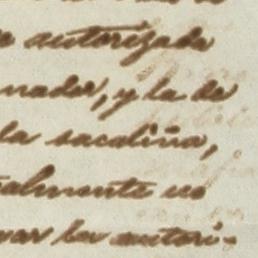 autorizada
nador, y la de
la sacaliña,
almente no
var la autori-